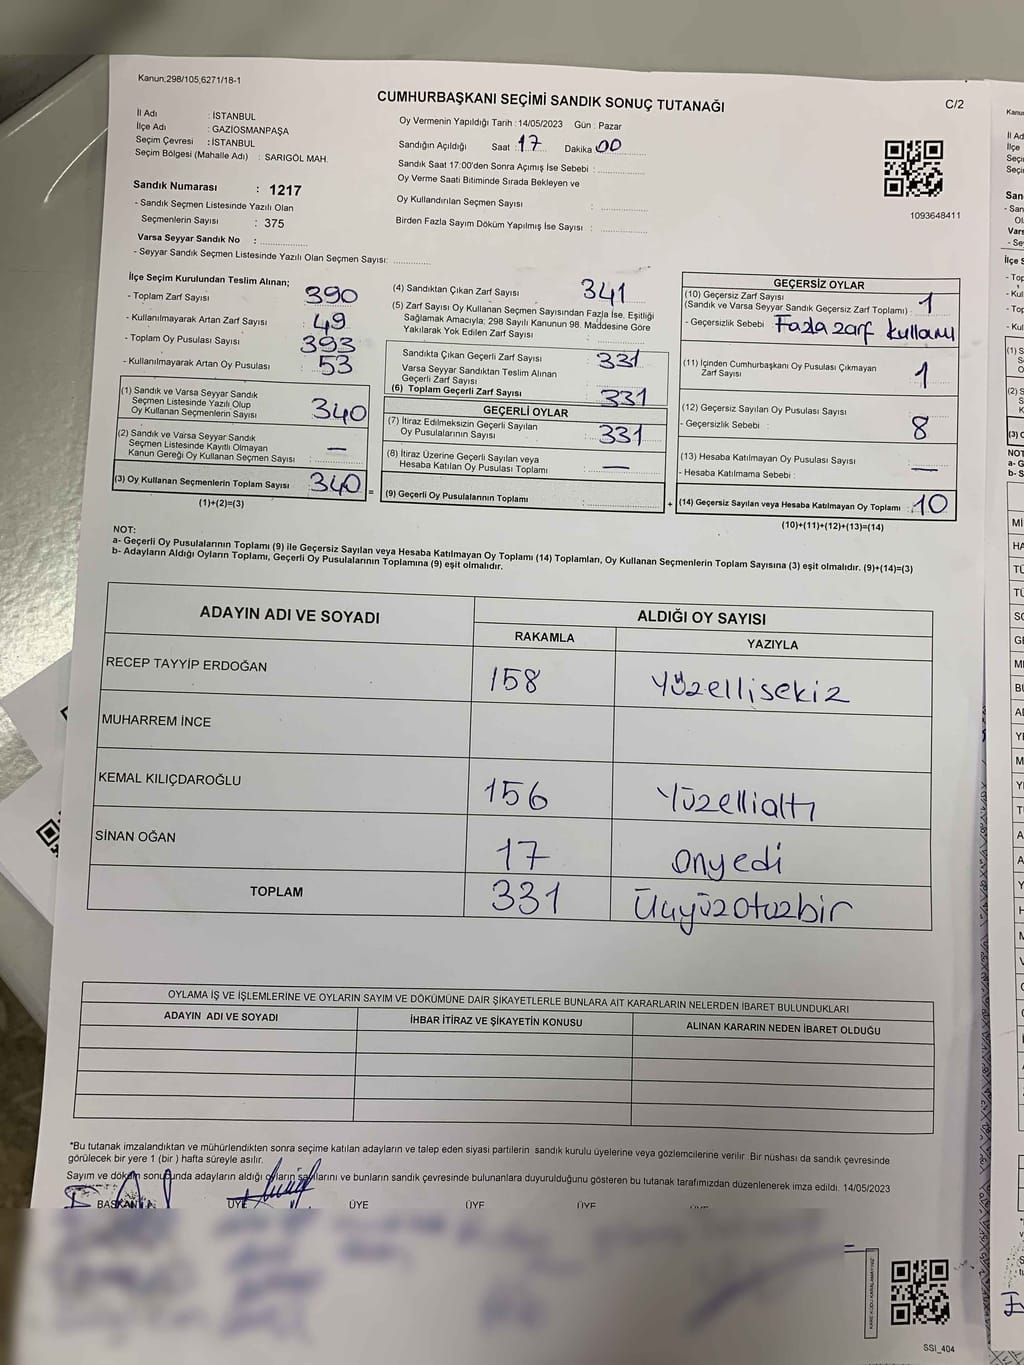 Kanun;298/105,6271/18-1
CUMHURBAŞKANI SEÇİMİ SANDIK SONUÇ TUTANAĞI
C/2
İl Adı : İSTANBUL
İlçe Adı : GAZİOSMANPAŞA
Seçim Çevresi : İSTANBUL
Seçim Bölgesi (Mahalle Adı) : SARIGÖL MAH.
Sandık Numarası : 1217
- Sandık Seçmen Listesinde Yazılı Olan
Seçmenlerin Sayısı : 375
Varsa Seyyar Sandık No :
- Seyyar Sandık Seçmen Listesinde Yazılı Olan Seçmen Sayısı:
Oy Vermenin Yapıldığı Tarih : 14/05/2023 Gün : Pazar
Sandığın Açıldığı Saat : 17 Dakika 00
Sandık Saat 17:00'den Sonra Açımış İse Sebebi :
Oy Verme Saati Bitiminde Sırada Bekleyen ve
Oy Kullandırılan Seçmen Sayısı :
Birden Fazla Sayım Döküm Yapılmış İse Sayısı :
1093648411
İlçe Seçim Kurulundan Teslim Alınan;
- Toplam Zarf Sayısı : 390
- Kullanılmayarak Artan Zarf Sayısı : 49
- Toplam Oy Pusulası Sayısı : 393
- Kullanılmayarak Artan Oy Pusulası : 53
(1) Sandık ve Varsa Seyyar Sandık
Seçmen Listesinde Yazılı Olup
Oy Kullanan Seçmenlerin Sayısı : 340
(2) Sandık ve Varsa Seyyar Sandık
Seçmen Listesinde Kayıtlı Olmayan
Kanun Gereği Oy Kullanan Seçmen Sayısı : —
(3) Oy Kullanan Seçmenlerin Toplam Sayısı : 340
(1)+(2)=(3)
=
(4) Sandıktan Çıkan Zarf Sayısı : 341
(5) Zarf Sayısı Oy Kullanan Seçmen Sayısından Fazla İse, Eşitliği
Sağlamak Amacıyla; 298 Sayılı Kanunun 98. Maddesine Göre
Yakılarak Yok Edilen Zarf Sayısı :
Sandıkta Çıkan Geçerli Zarf Sayısı : 331
Varsa Seyyar Sandıktan Teslim Alınan
Geçerli Zarf Sayısı :
(6) Toplam Geçerli Zarf Sayısı : 331
GEÇERLİ OYLAR
(7) İtiraz Edilmeksizin Geçerli Sayılan
Oy Pusulalarının Sayısı : 331
(8) İtiraz Üzerine Geçerli Sayılan veya
Hesaba Katılan Oy Pusulası Toplamı : —
(9) Geçerli Oy Pusulalarının Toplamı :
+
GEÇERSİZ OYLAR
(10) Geçersiz Zarf Sayısı
(Sandık ve Varsa Seyyar Sandık Geçersiz Zarf Toplamı) : 1
- Geçersizlik Sebebi : Fazla zarf kullanı
(11) İçinden Cumhurbaşkanı Oy Pusulası Çıkmayan
Zarf Sayısı : 1
(12) Geçersiz Sayılan Oy Pusulası Sayısı : 8
- Geçersizlik Sebebi :
(13) Hesaba Katılmayan Oy Pusulası Sayısı : —
- Hesaba Katılmama Sebebi :
(14) Geçersiz Sayılan veya Hesaba Katılmayan Oy Toplamı : 10
(10)+(11)+(12)+(13)=(14)
NOT:
a- Geçerli Oy Pusulalarının Toplamı (9) ile Geçersiz Sayılan veya Hesaba Katılmayan Oy Toplamı (14) Toplamları, Oy Kullanan Seçmenlerin Toplam Sayısına (3) eşit olmalıdır. (9)+(14)=(3)
b- Adayların Aldığı Oyların Toplamı, Geçerli Oy Pusulalarının Toplamına (9) eşit olmalıdır.
ADAYIN ADI VE SOYADI
ALDIĞI OY SAYISI
RAKAMLA YAZIYLA
RECEP TAYYİP ERDOĞAN 158 Yüzellisekiz
MUHARREM İNCE
KEMAL KILIÇDAROĞLU 156 Yüzellialtı
SİNAN OĞAN 17 onyedi
TOPLAM 331 Üçyüzotuzbir
OYLAMA İŞ VE İŞLEMLERİNE VE OYLARIN SAYIM VE DÖKÜMÜNE DAİR ŞİKAYETLERLE BUNLARA AİT KARARLARIN NELERDEN İBARET BULUNDUKLARI
ADAYIN ADI VE SOYADI İHBAR İTİRAZ VE ŞİKAYETİN KONUSU ALINAN KARARIN NEDEN İBARET OLDUĞU
*Bu tutanak imzalandıktan ve mühürlendikten sonra seçime katılan adayların ve talep eden siyasi partilerin sandık kurulu üyelerine veya gözlemcilerine verilir. Bir nüshası da sandık çevresinde
görülecek bir yere 1 (bir ) hafta süreyle asılır.
Sayım ve döküm sonucunda adayların aldığı oyların sayılarını ve bunların sandık çevresinde bulunanlara duyurulduğunu gösteren bu tutanak tarafımızdan düzenlenerek imza edildi. 14/05/2023
BAŞKAN ÜYE ÜYE ÜYE ÜYE
SSI_404